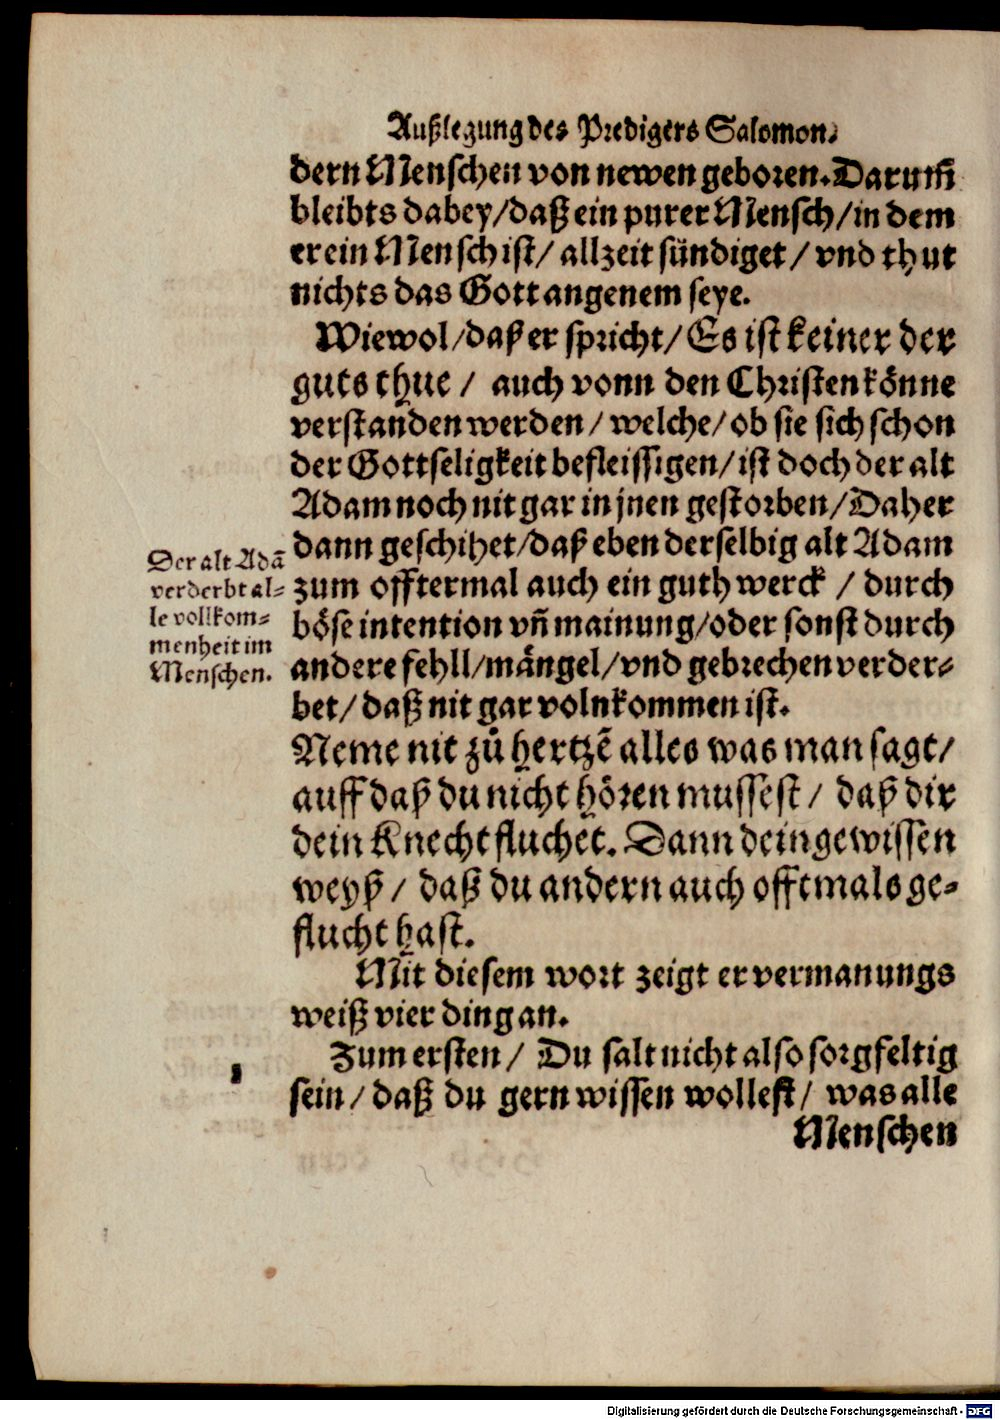 Außlegung des Predigers Salomon.
dern Menschen von newen geboren. Darum̃
bleibts dabey/daß ein purer Mensch/in dem
er ein Mensch ist/ allzeit sündiget/ vnd thut
nichts das Gott angenem seye.
Wiewol/daß er spricht/ Es ist keiner der
guts thue / auch vonn den Christen könne
verstanden werden/ welche/ ob sie sich schon
der Gottseligkeit befleissigen/ist doch der alt
Adam noch nit gar in jnen gestorben/Daher
dann geschihet/daß eben derselbig alt Adam
zum offtermal auch ein guth werck / durch
böse intention vñ mainung/oder sonst durch
andere fehll/mängel/vnd gebrechen verder⸗
bet/ daß nit gar volnkommen ist.
Der alt Adã
verderbt al⸗
le vollkom⸗
menheit im
Menschen.
Neme nit zů hertzẽ alles was man sagt/
auff daß du nicht hören mussest/ daß dir
dein Knecht fluchet. Dann dein gewissen
weyß/ daß du andern auch offtmals ge⸗
flucht hast.
Mit diesem wort zeigt er vermanungs
weiß vier ding an.
1
Zum ersten/ Du salt nicht also sorgfeltig
sein/ daß du gern wissen wollest/ was alle
Menschen
Digitalisierung gefördert durch die Deutsche Forschungsgemeinschaft - DFG